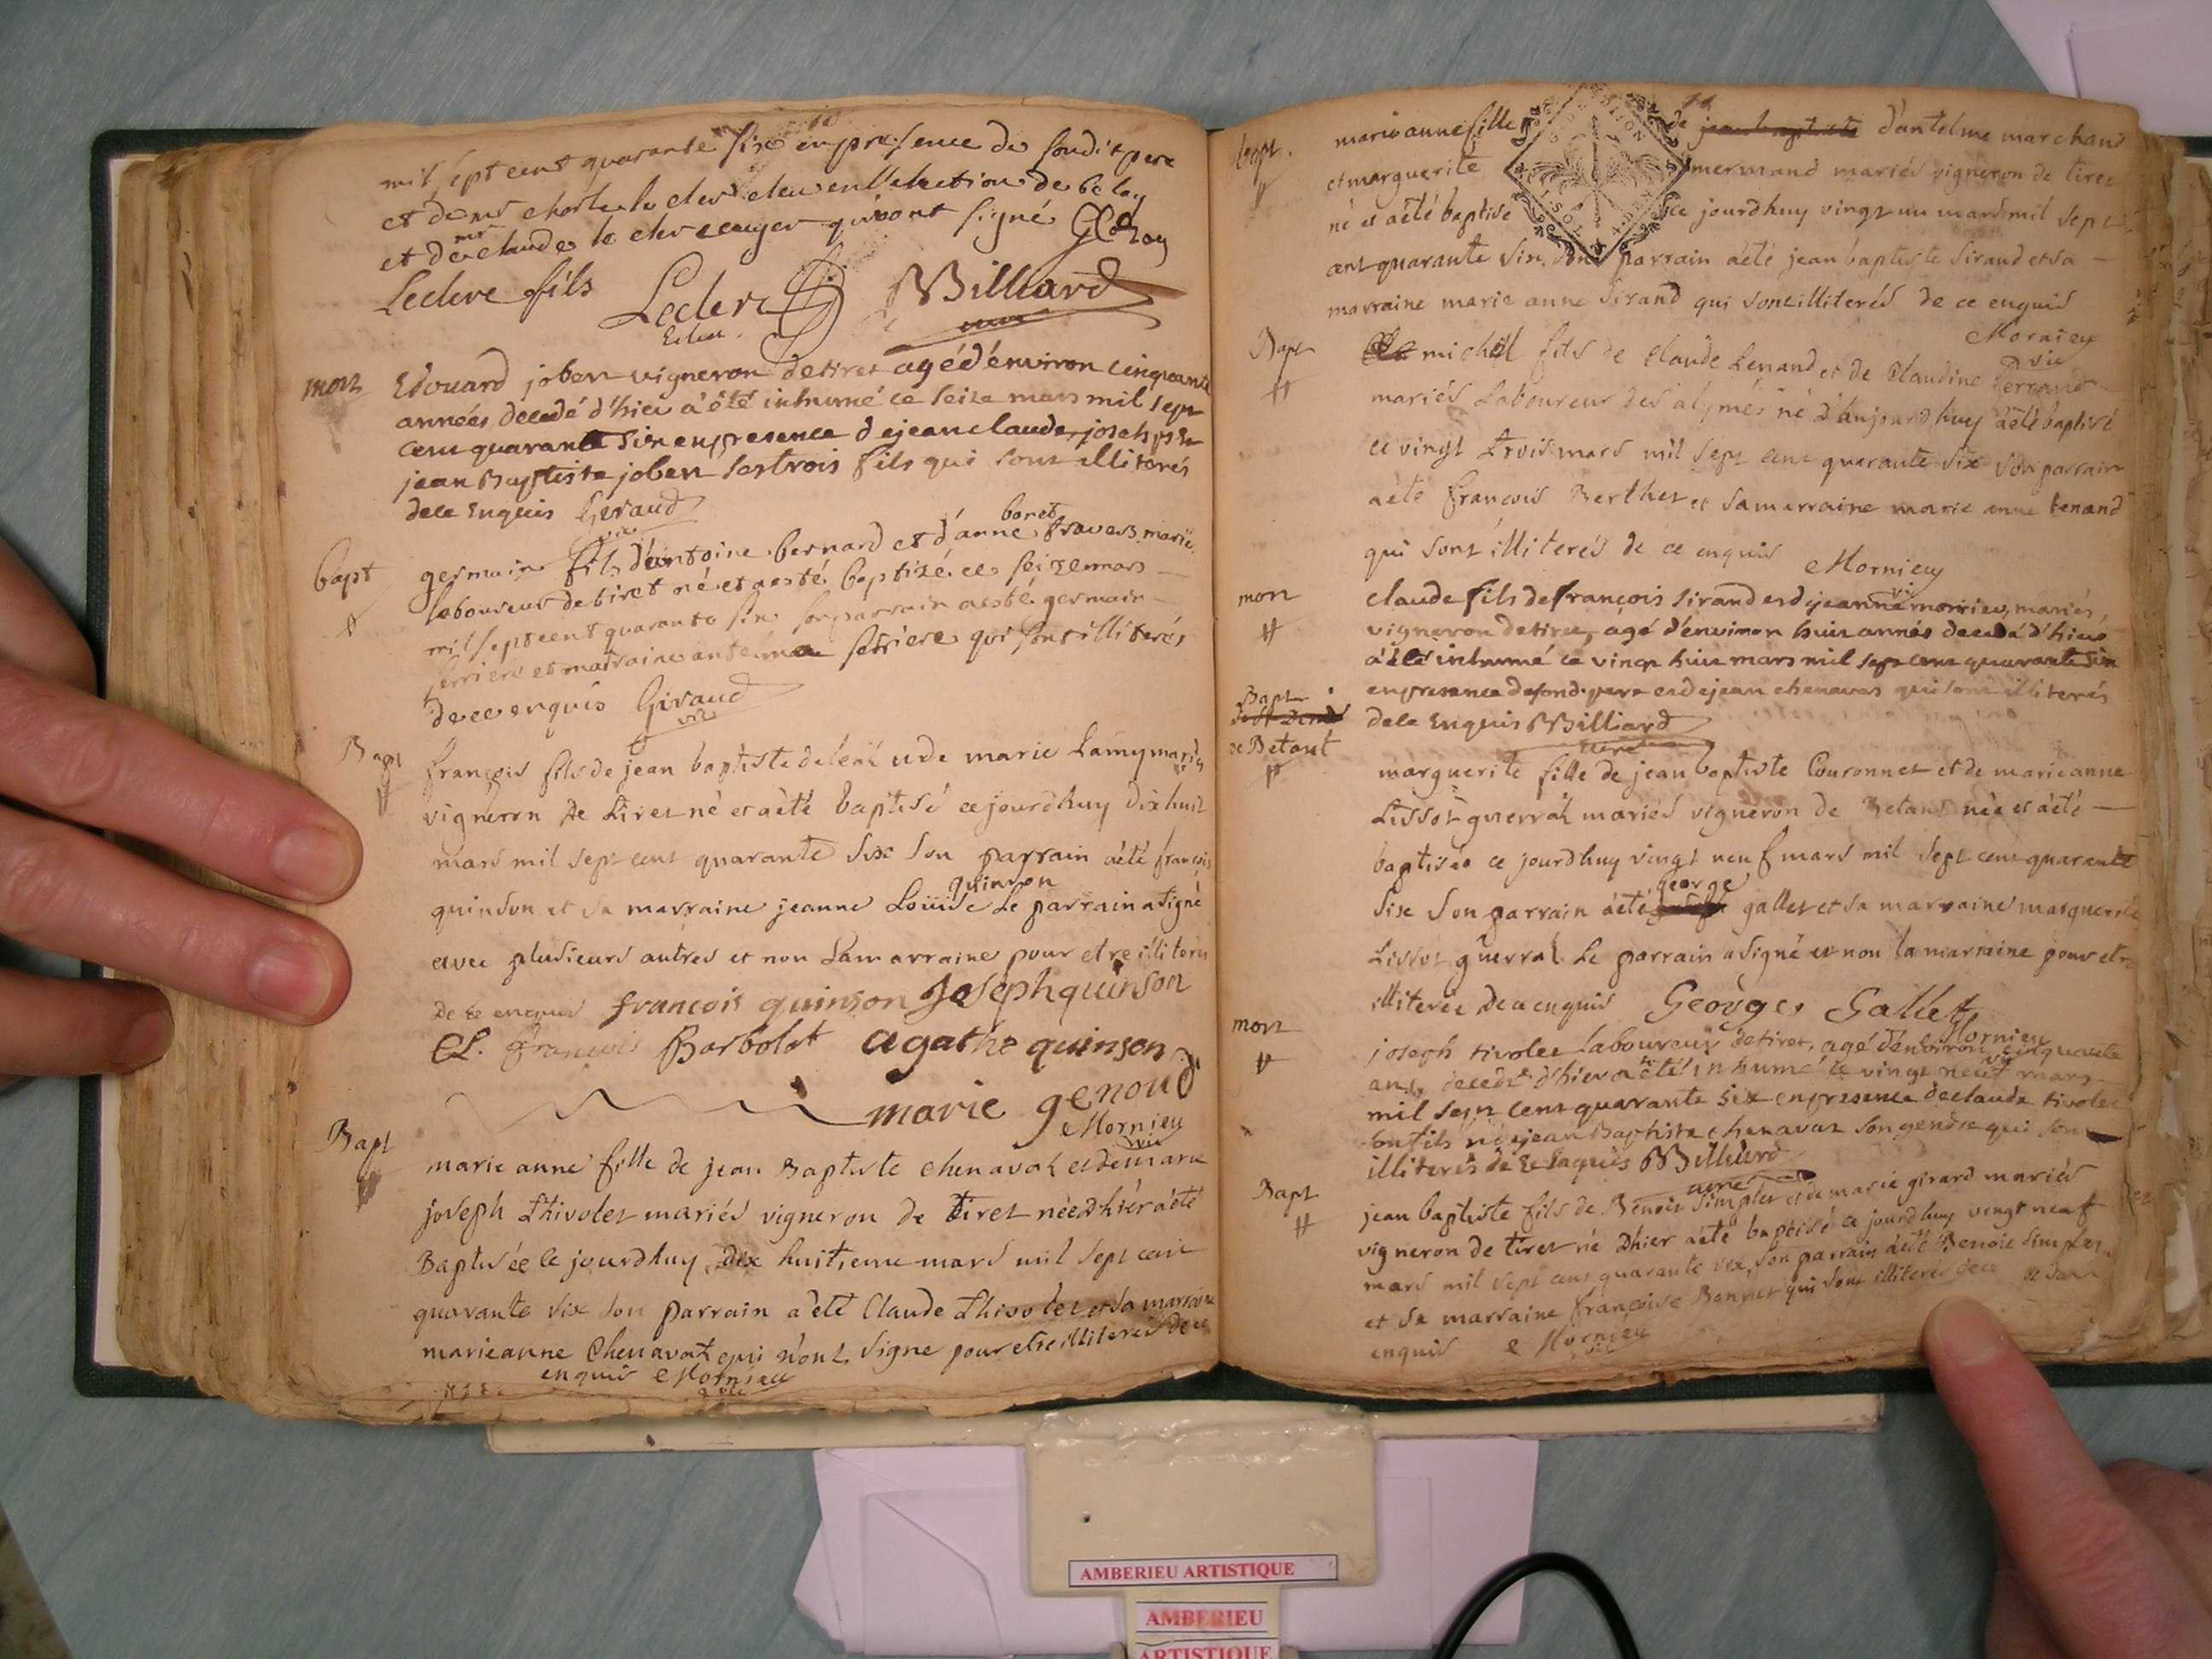 10
mil sept cent quarante six en presence du soudit pere
et de mr charle le clerc eleu en l'election de belay
et de mr claude le clerc ecuyer qui ont signé
Leclerc fils Leclerc Billiard
Eleu. curé
mort Edouard joben vigneron detiret agé d'environ cinquante
années decedé d'hier a été inhumé ce seize mars mil sept
cent quarante six en presence de jean claude, joseph et
jean Baptiste joben ses trois fils qui sont illiterés
de ce Enquis Giraud
vic
bapt germain fils d'antoine bernard et d'anne boret travers mariés
laboureur de tiret né et aesté baptizé ce seize mars
mil sept cent quarante six son parrain aesté germain
ferriere et marraine antelma ferriere qui sont illiterés
de ce enquis Giraud
vic
Bapt françois fils de jean baptiste et de marie Lamy mariés
vigneron de tiret né et aété baptisé ce jourdhuy dix huit
mars mil sept cent quarante six son parrain aété françois
quinson et sa marraine jeanne Louise quinson Le parrain a signé
avec plusieurs autres et non Lamarraine pour etre illiteré
de ce enquis francois quinson Joseph quinson
francois Barbolat agathe quinson
marie genoud
Mornieu
vic
Bapt marie anne fille de jean Baptiste chenavaz et de marie
joseph Thivolet mariés vigneron de tiret née dhier aété
Baptisée ce jourdhuy dix huitieme mars mil sept cent
quarante six son parrain a été Claude Thivolet et sa marraine
marieanne Chenavaz qui n'ont signe pour etre illiterés de ce
enquis Mornieu
vic
11
bapt. marie anne fille de jean baptiste d'antelme marchand
et marguerite mermand mariés vigneron de tiret
né et aété baptisé ce jourdhuy vingt un mars mil sept
cent quarante six, son parrain aété jean baptiste Sirand et sa
marraine marie anne Sirand qui sont illiterés de ce enquis
Mornieu
vic
Bapt michel fils de Claude Lenand et de Claudine ferrand
mariés Laboureur des alymés né d'aujourdhuy aété baptisé
ce vingt trois mars mil sept cent quarante six son parrain
aété francois Berthet et sa marraine marie anne tenand
qui sont illiterés de ce enquis Mornieu
vic
mort claude fils de françois sirand et de jeanne mornieu, mariés,
vigneron detiret, agé d'environ huit années decedé d'hier
a été inhumé ce vingt huit mars mil sept cent quarante six
en presence de son d. pere et de jean chenavas qui sont illiterés
de ce Enquis Billiard
curé
Bapt
de Betant
marguerite fille de jean baptiste Couronnet et de marie anne
Lissot guerraz mariés vigneron de Betant née et aété
baptisée ce jourdhuy vingt neuf mars mil sept cent quarante
six son parrain aété george gallet et sa marraine marguerite
Lissot guerral Le parrain a signé et non la marraine pour etre
illiterée de ce enquis Georges Gallet
Mornieu
vic
mort joseph tivolet laboureur detiret, agé d'environ cinquante
ans, decedé d'hier a été inhumé ce vingt neuf mars
mil sept cent quarante six en presence de claude tivolet
son fils et de jean Baptiste chenavaz son gendre qui sont
illiterés de ce Enquis Billiard
curé
Bapt jean baptiste fils de Benoit Simplet et de marie girard mariés
vigneron de tiret né dhier aété baptisé ce jourdhuy vingt neuf
mars mil sept cent quarante six, son parrain aété Benoit Simplet
et sa marraine françoise Bonnet qui sont illiterés de ce
enquis Mornieu
vic
AMBERIEU ARTISTIQUE
AMBERIEU
ARTISTIQUE